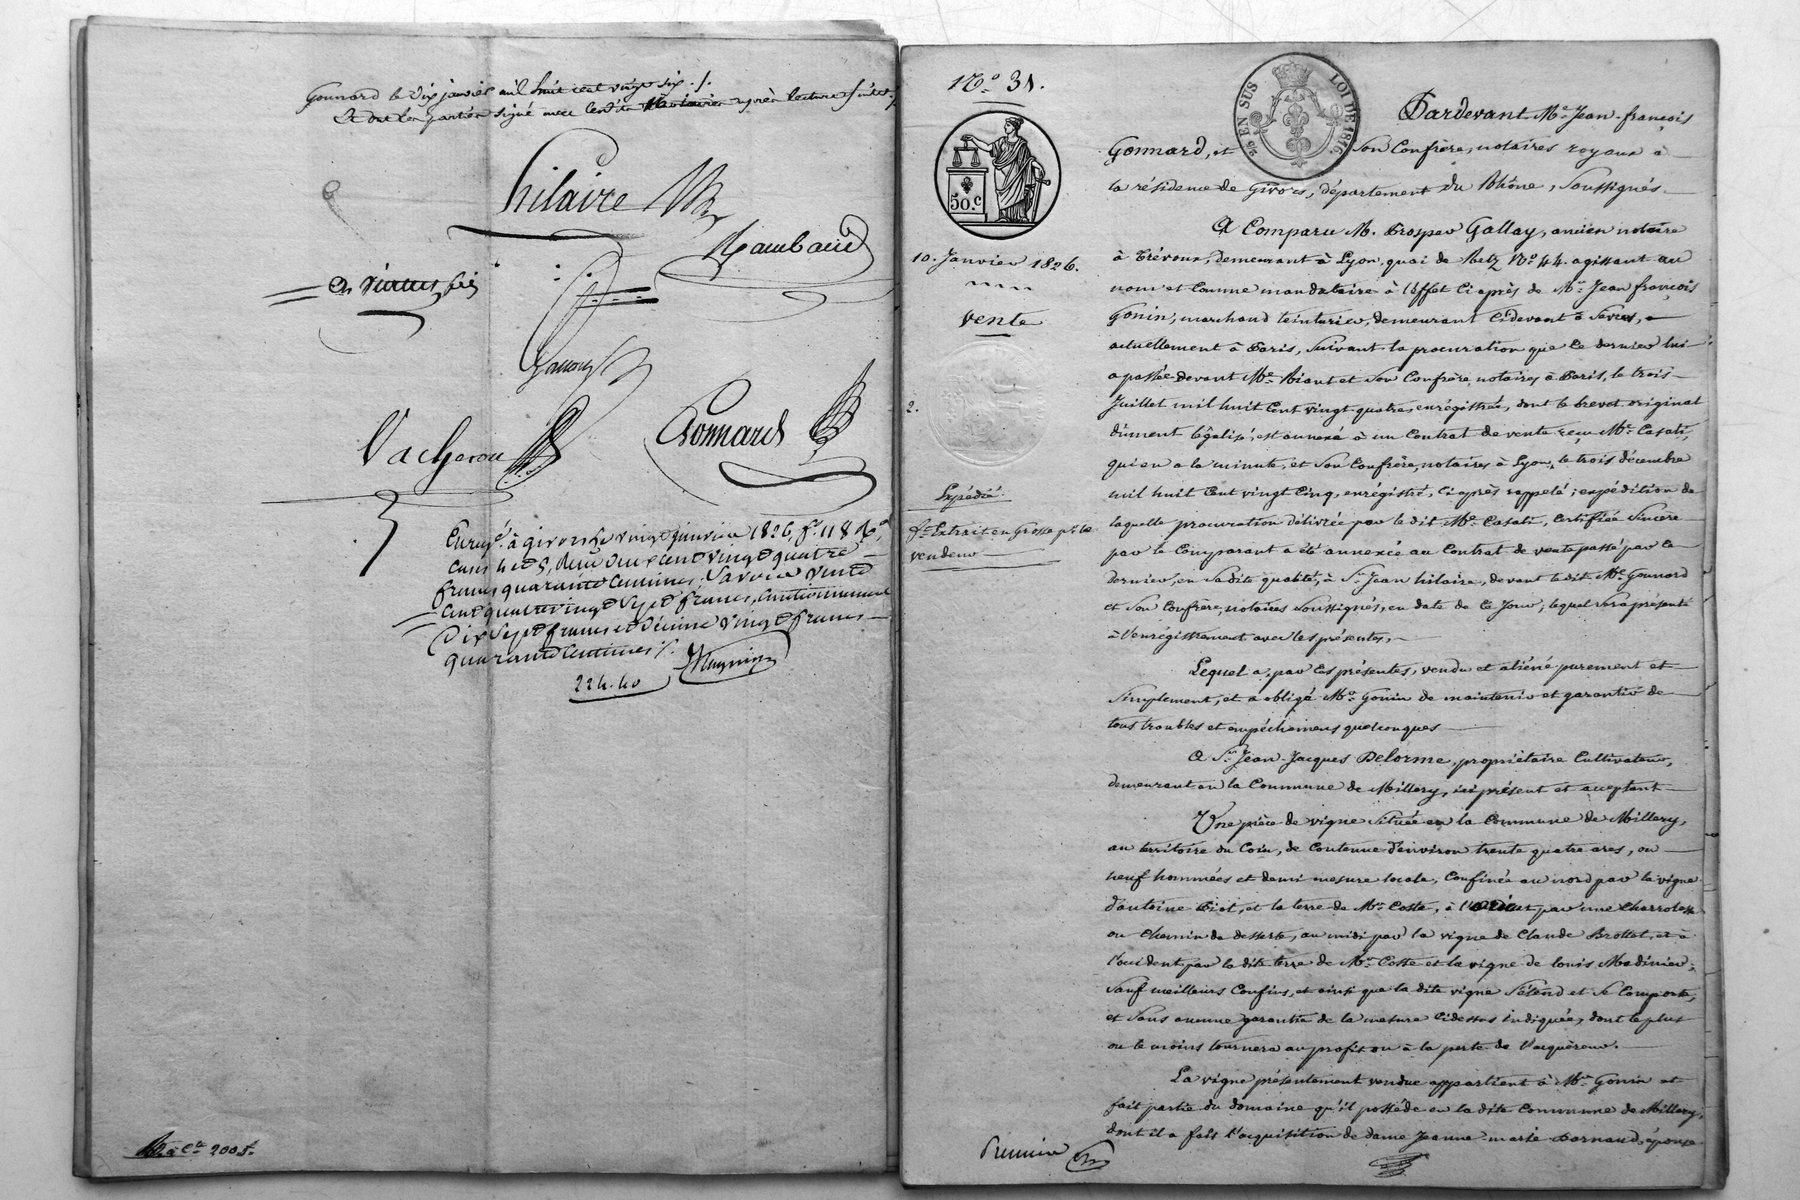 Gonnard le dix janvier mil huit cent vingt six ./.
Et ont les parties signé avec lesdits Notaires après lecture faite ./.
hilaire
Rambaud
Gonnard
Vacheron
Enreg.é à givors le vingt janvier 1826, f.o 118 R.o,
cases 4 et 5, Reçu deux cent vingt quatre
francs quarante centimes, Savoir vente
cent quatre vingt sept francs, cautionnement
Dix Sept francs et décime vingt francs
quarante centimes ./.
Magnin
224.40
200 f.
N.o 31.
25 EN SUS
LOI DE 1816.
50.c
10. Janvier 1826.
vente
2.
Expédié.
f.t Extrait en Grosse p.r le
vendeur
Pardevant M.e Jean-françois
Gonnard, et Son Confrère, notaires royaux à
la résidence de Givors, département du Rhône, Soussignés.
A Comparu M. Prosper Gallay, ancien notaire
à Trévoux, demeurant à Lyon, quai de Retz N.o 44. agissant au
nom et Comme mandataire à l'Effet Ci après de M.r Jean françois
Gonin, marchand teinturier, demeurant Cidevant à Sèvres,
actuellement à Paris, Suivant la procuration que Ce dernier lui
a passée devant M.e Riant et Son Confrère, notaires à Paris, le trois
Juillet mil huit Cent vingt quatre, enrégistrée, dont le brevet original
dûment légalisé, est annexé à un Contrat de vente reçu M.e Casati,
qui en a la minute, et Son Confrère, notaires à Lyon, le trois décembre
mil huit Cent vingt Cinq, enrégistré, Ci après rappelé; expédition de
laquelle procuration délivrée par le dit M.e Casati, Certifiée Sincère
par le Comparant a été annexée au Contrat de vente passé par Ce
dernier, en Sadite qualité, à S.r Jean hilaire, devant le dit M.e Gonnard
et Son Confrère, notaires Soussignés, en date de Ce Jour, lequel Sera présenté
à l'enrégistrement avec les présentes,
Lequel a, par Ces présentes, vendu et aliéné purement et
Simplement, et a obligé M.r Gonin de maintenir et garantir de
tous troubles et empéchemens quelconques
A S.r Jean-Jacques Delorme, propriétaire Cultivateur,
demeurant en la Commune de Millery, ici présent et acceptant
Une pièce de vigne Située en la Commune de Millery,
au territoire du Coin, de Contenue d'environ trente quatre ares, ou
neuf hommées et demi mesure locale, Confinée au nord par la vigne
d'antoine Piot, et la terre de M.r Coste, à l'orient par une Charrotesse
ou Chemin de desserte, au midi par la vigne de Claude Brottet, et à
l'occident par la dite terre de M.r Coste et la vigne de louis Madinier,
Sauf meilleurs Confins, et ainsi que la dite vigne S'étend et Se Comporte,
et Sans aucune garantie de la mesure Cidessus indiquée, dont le plus
ou le moins tournera au profit ou à la perte de l'acquéreur.
La vigne présentement vendue appartient à M.r Gonin et
fait partie du domaine qu'il possède en la dite Commune de Millery,
dont il a fait l'acquisition de dame Jeanne marie Parnaud, épouse
Premier